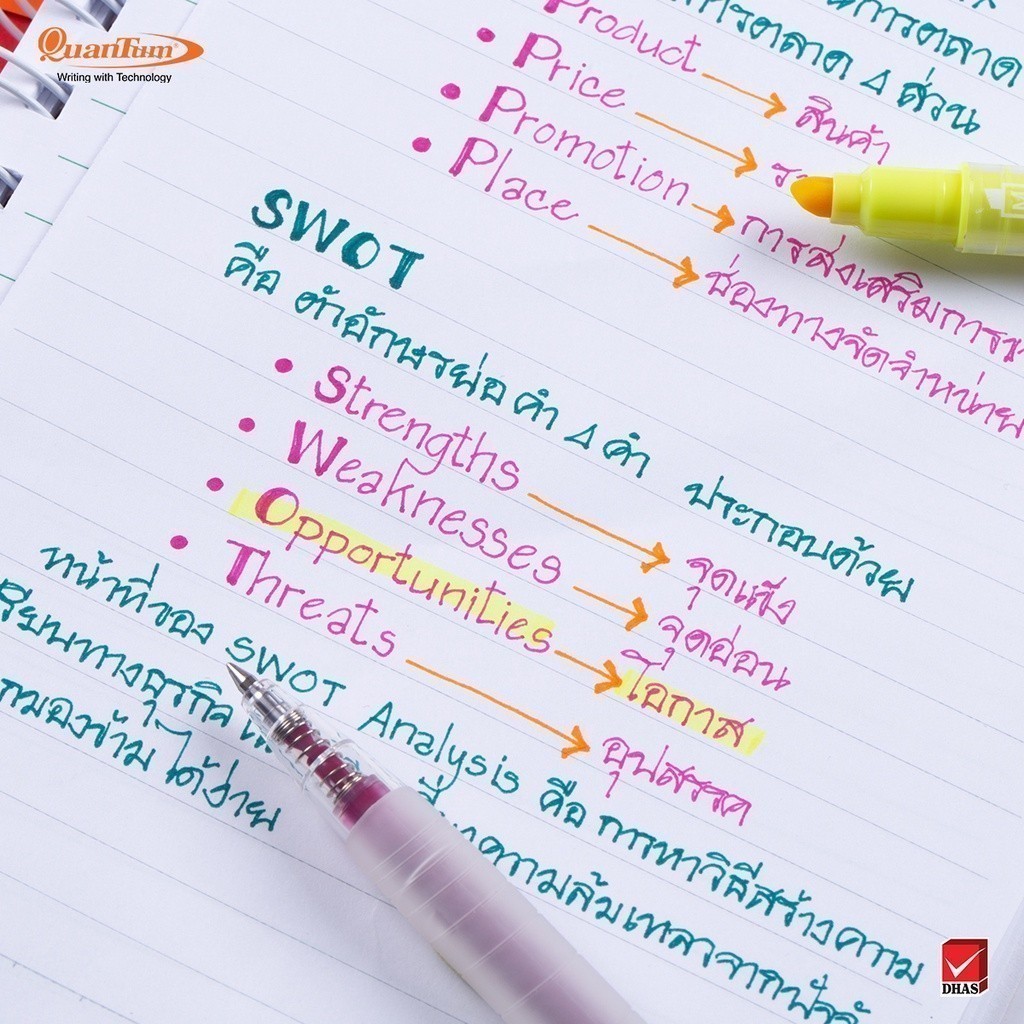 QuanTum®
Writing with Technology
การตลาด
การตลาด 4 ส่วน
Product สินค้า
• Price
• Promotion การส่งเสริมการ
• Place ช่องทางจัดจำหน่าย
SWOT
คือ ตัวอักษรย่อ คำ 4 คำ ประกอบด้วย
• Strengths จุดแข็ง
• Weaknesses จุดอ่อน
• Opportunities โอกาส
• Threats อุปสรรค
หน้าที่ของ SWOT Analysis คือ การหาวิธีสร้างความ
ทางธุรกิจ ความล้มเหลวจากปัจจั
มองข้าม ได้ง่าย
DHAS